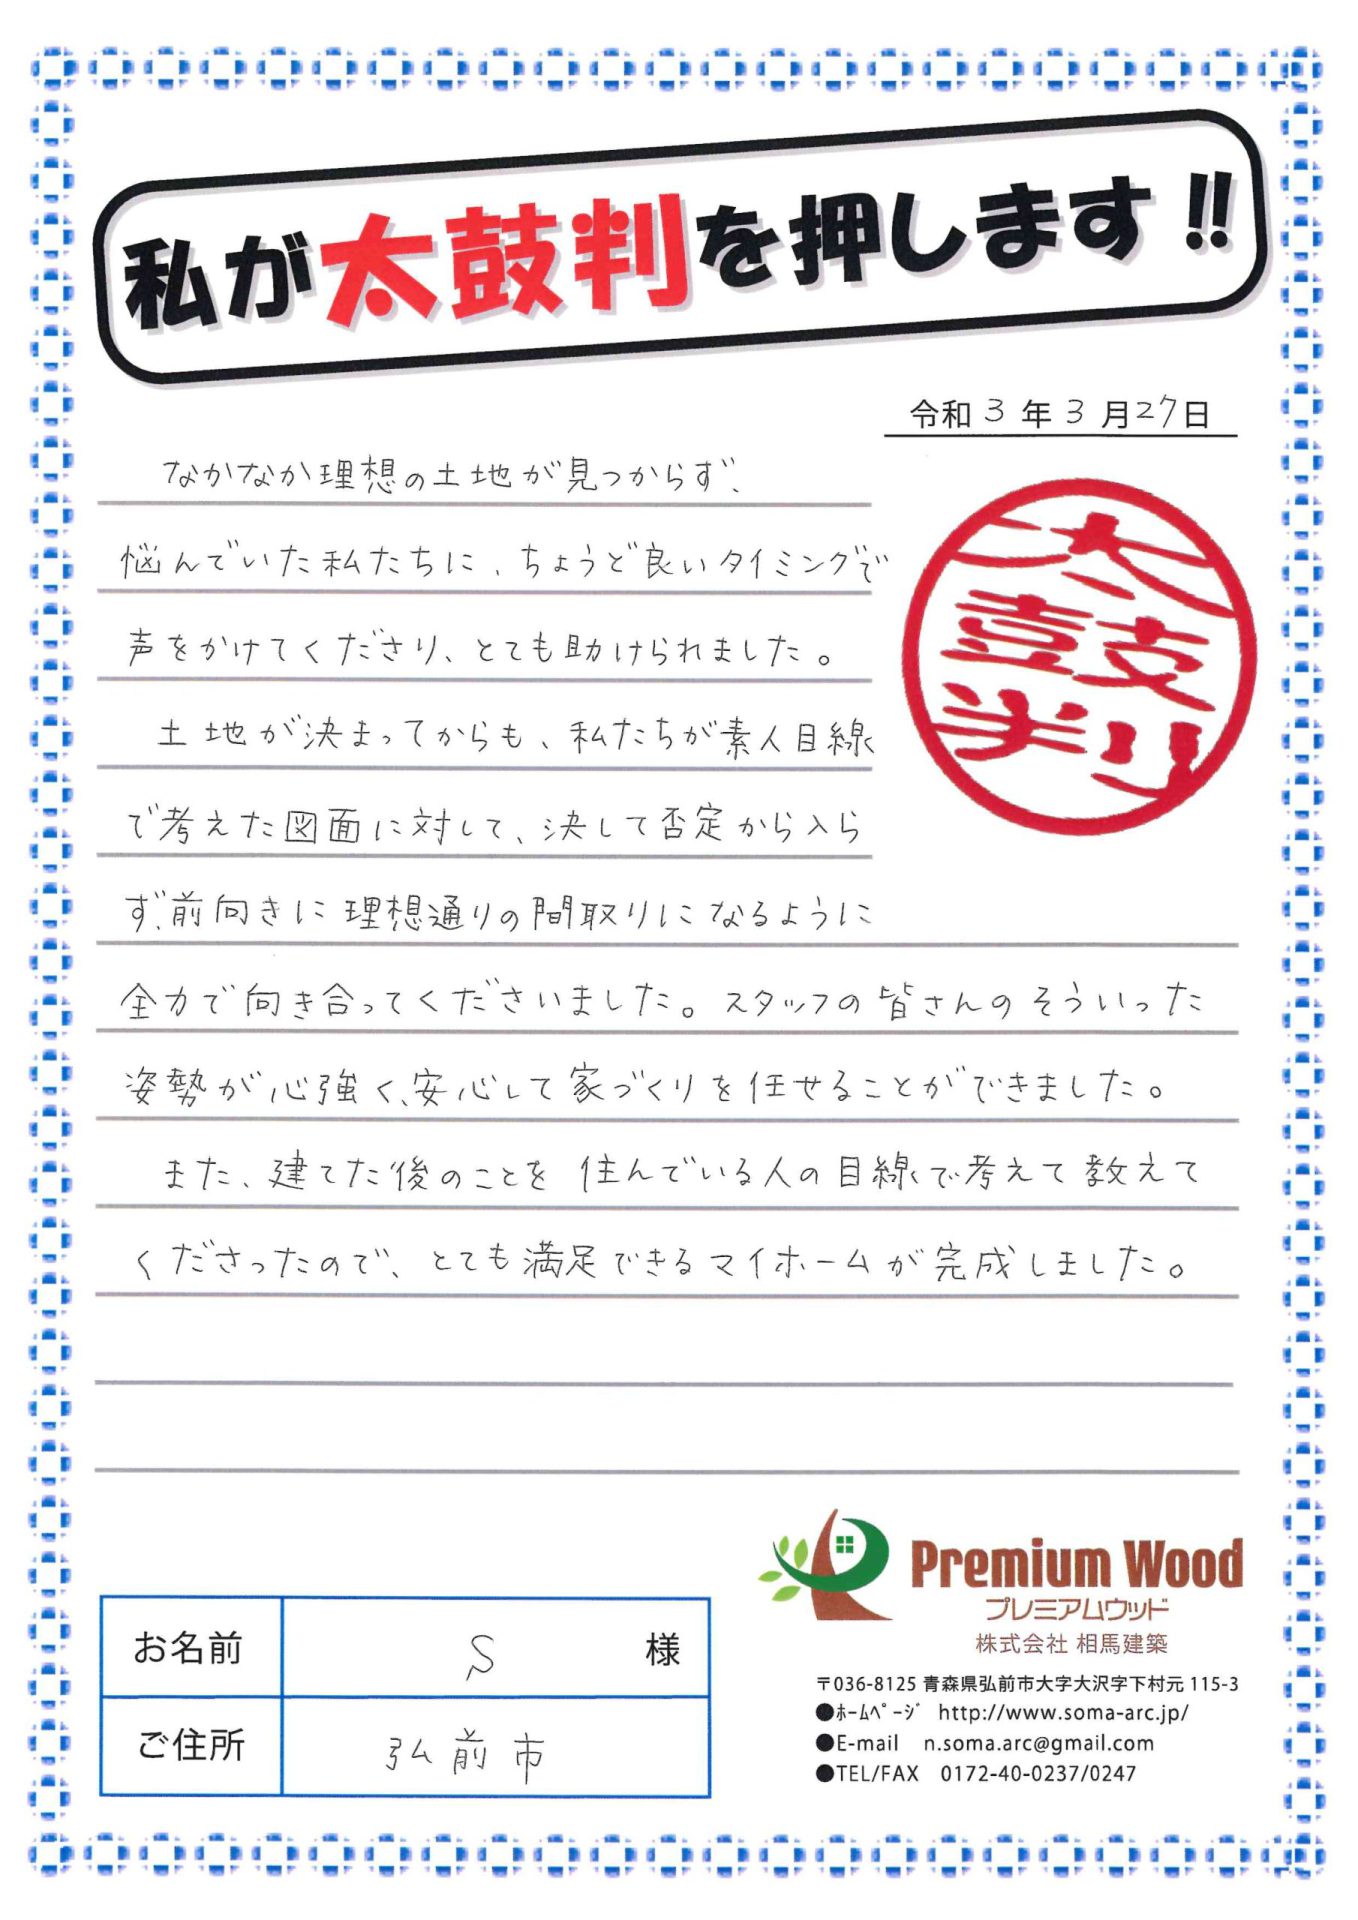 私が太鼓判を押します!!
令和3年3月27日
なかなか理想の土地が見つからず、
悩んでいた私たちに、ちょうど良いタイミングで
声をかけてくださり、とても助けられました。
土地が決まってからも、私たちが素人目線
で考えた図面に対して、決して否定から入ら
ず、前向きに理想通りの間取りになるように
全力で向き合ってくださいました。スタッフの皆さんのそういった
姿勢が心強く、安心して家づくりを任せることができました。
また、建てた後のことを住んでいる人の目線で考えて教えて
くださったので、とても満足できるマイホームが完成しました。
太
鼓
判
お名前 S 様
ご住所 弘前市
Premium Wood
プレミアムウッド
株式会社 相馬建築
〒036-8125 青森県弘前市大字大沢字下村元 115-3
●ﾎｰﾑﾍﾟｰｼﾞ http://www.soma-arc.jp/
●E-mail n.soma.arc@gmail.com
●TEL/FAX 0172-40-0237/0247